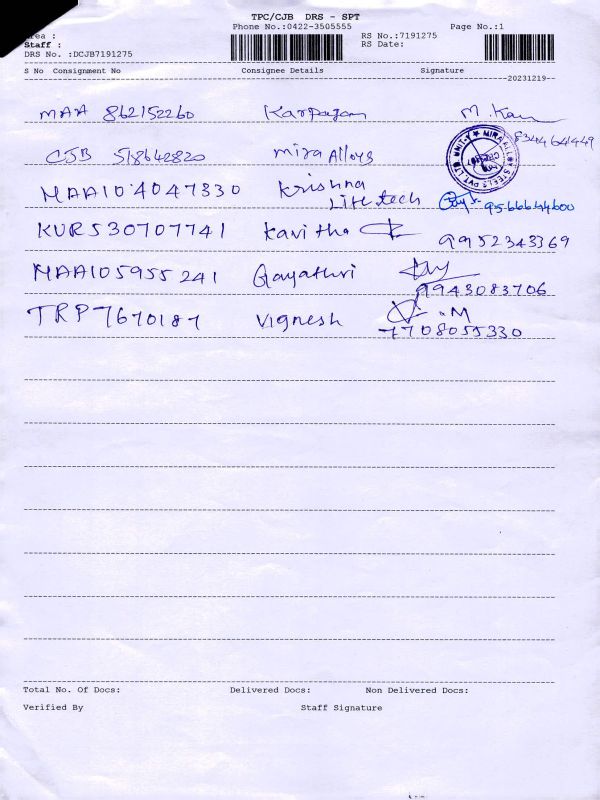 TPC/CJB DRS - SPT
Phone No.:0422-3505555 Page No.:1
Area : RS No.:7191275
Staff : RS Date:
DRS No. :DCJB7191275
S No Consignment No Consignee Details Signature
20231219
MAA 862152260 Karpagam M. Kan
CJB 518642820 Mira Alloys 8344641449
MIRA ALLOY STEELS PVT LTD UNIT-V
MAA104047330 Krishna
Lifetech 9566644600
KVR530707741 Kavitha 9952343369
MAA105955241 Gayathri
9943083706
TRP7670187 Vignesh .M
7708055330
Total No. Of Docs: Delivered Docs: Non Delivered Docs:
Verified By Staff Signature